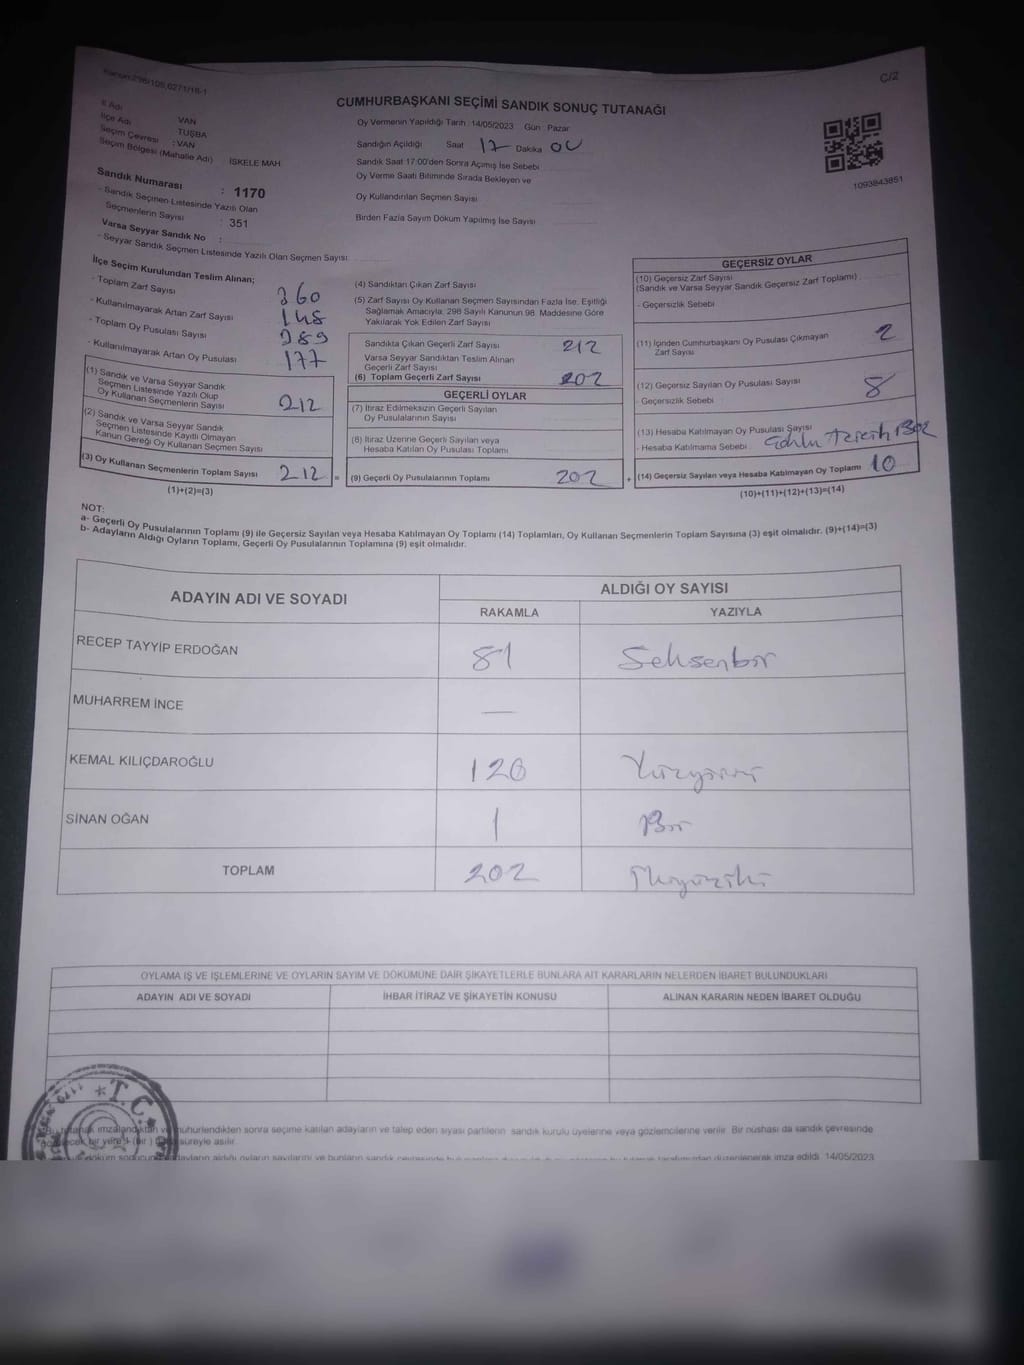 Kanun:298/105,6271/18-1
C/2
CUMHURBAŞKANI SEÇİMİ SANDIK SONUÇ TUTANAĞI
İl Adı : VAN
İlçe Adı TUŞBA
Seçim Çevresi : VAN
Seçim Bölgesi (Mahalle Adı) İSKELE MAH
Sandık Numarası : 1170
- Sandık Seçmen Listesinde Yazılı Olan
Seçmenlerin Sayısı : 351
Varsa Seyyar Sandık No :
- Seyyar Sandık Seçmen Listesinde Yazılı Olan Seçmen Sayısı
Oy Vermenin Yapıldığı Tarih :14/05/2023 Gün : Pazar
Sandığın Açıldığı Saat 17 Dakika 00
Sandık Saat 17:00'den Sonra Açımış İse Sebebi
Oy Verme Saati Bitiminde Sırada Bekleyen ve
Oy Kullandırılan Seçmen Sayısı
Birden Fazla Sayım Döküm Yapılmış İse Sayısı
1093843851
İlçe Seçim Kurulundan Teslim Alınan;
- Toplam Zarf Sayısı 360
- Kullanılmayarak Artan Zarf Sayısı 148
- Toplam Oy Pusulası Sayısı 389
- Kullanılmayarak Artan Oy Pusulası 177
(1) Sandık ve Varsa Seyyar Sandık
Seçmen Listesinde Yazılı Olup
Oy Kullanan Seçmenlerin Sayısı 212
(2) Sandık ve Varsa Seyyar Sandık
Seçmen Listesinde Kayıtlı Olmayan
Kanun Gereği Oy Kullanan Seçmen Sayısı
(3) Oy Kullanan Seçmenlerin Toplam Sayısı 212 =
(1)+(2)=(3)
(4) Sandıktan Çıkan Zarf Sayısı
(5) Zarf Sayısı Oy Kullanan Seçmen Sayısından Fazla İse, Eşitliği
Sağlamak Amacıyla, 298 Sayılı Kanunun 98. Maddesine Göre
Yakılarak Yok Edilen Zarf Sayısı
Sandıkta Çıkan Geçerli Zarf Sayısı 212
Varsa Seyyar Sandıktan Teslim Alınan
Geçerli Zarf Sayısı
(6) Toplam Geçerli Zarf Sayısı 202
GEÇERLİ OYLAR
(7) İtiraz Edilmeksizin Geçerli Sayılan
Oy Pusulalarının Sayısı
(8) İtiraz Üzerine Geçerli Sayılan veya
Hesaba Katılan Oy Pusulası Toplamı
(9) Geçerli Oy Pusulalarının Toplamı 202 +
GEÇERSİZ OYLAR
(10) Geçersiz Zarf Sayısı
(Sandık ve Varsa Seyyar Sandık Geçersiz Zarf Toplamı)
- Geçersizlik Sebebi
(11) İçinden Cumhurbaşkanı Oy Pusulası Çıkmayan
Zarf Sayısı 2
(12) Geçersiz Sayılan Oy Pusulası Sayısı 8
- Geçersizlik Sebebi
(13) Hesaba Katılmayan Oy Pusulası Sayısı
- Hesaba Katılmama Sebebi
(14) Geçersiz Sayılan veya Hesaba Katılmayan Oy Toplamı 10
(10)+(11)+(12)+(13)=(14)
NOT:
a- Geçerli Oy Pusulalarının Toplamı (9) ile Geçersiz Sayılan veya Hesaba Katılmayan Oy Toplamı (14) Toplamları, Oy Kullanan Seçmenlerin Toplam Sayısına (3) eşit olmalıdır. (9)+(14)=(3)
b- Adayların Aldığı Oyların Toplamı, Geçerli Oy Pusulalarının Toplamına (9) eşit olmalıdır.
ADAYIN ADI VE SOYADI ALDIĞI OY SAYISI
RAKAMLA YAZIYLA
RECEP TAYYİP ERDOĞAN 81 Seksenbir
MUHARREM İNCE —
KEMAL KILIÇDAROĞLU 120 Yüzyirmi
SİNAN OĞAN 1 Bir
TOPLAM 202 İkiyüziki
OYLAMA İŞ VE İŞLEMLERİNE VE OYLARIN SAYIM VE DÖKÜMÜNE DAİR ŞİKAYETLERLE BUNLARA AİT KARARLARIN NELERDEN İBARET BULUNDUKLARI
ADAYIN ADI VE SOYADI İHBAR İTİRAZ VE ŞİKAYETİN KONUSU ALINAN KARARIN NEDEN İBARET OLDUĞU
T.C.
tutanak imzalandıktan ve mühürlendikten sonra seçime katılan adayların ve talep eden siyasi partilerin sandık kurulu üyelerine veya gözlemcilerine verilir. Bir nüshası da sandık çevresinde
bir yere 1 (bir) süreyle asılır.
düzenlenerek imza edildi. 14/05/2023